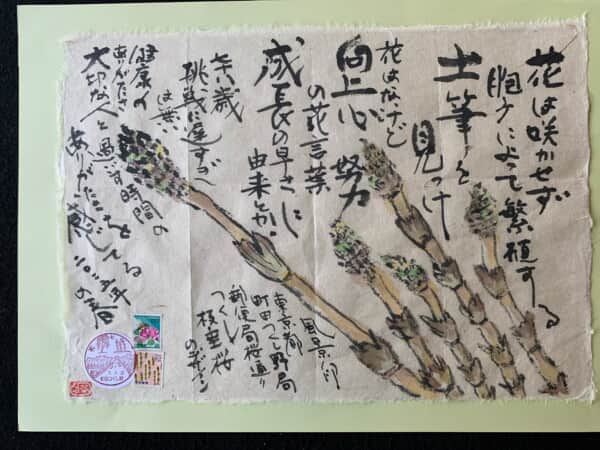 花は咲かせず
胞子によって繁殖する
土筆を
見つけ
花はないけど
向上心 努力
の花言葉
成長の早さに
由来とか.
余歳
挑戦に遅すぎ
は無い
健康の
ありがたさ
大切な人と過ごす時間の
ありがたさを
感じてる
二〇二五年
の春
風景印
東京都
町田つくし野局
郵便局桜通り
つくし 枝垂桜
のデザイン